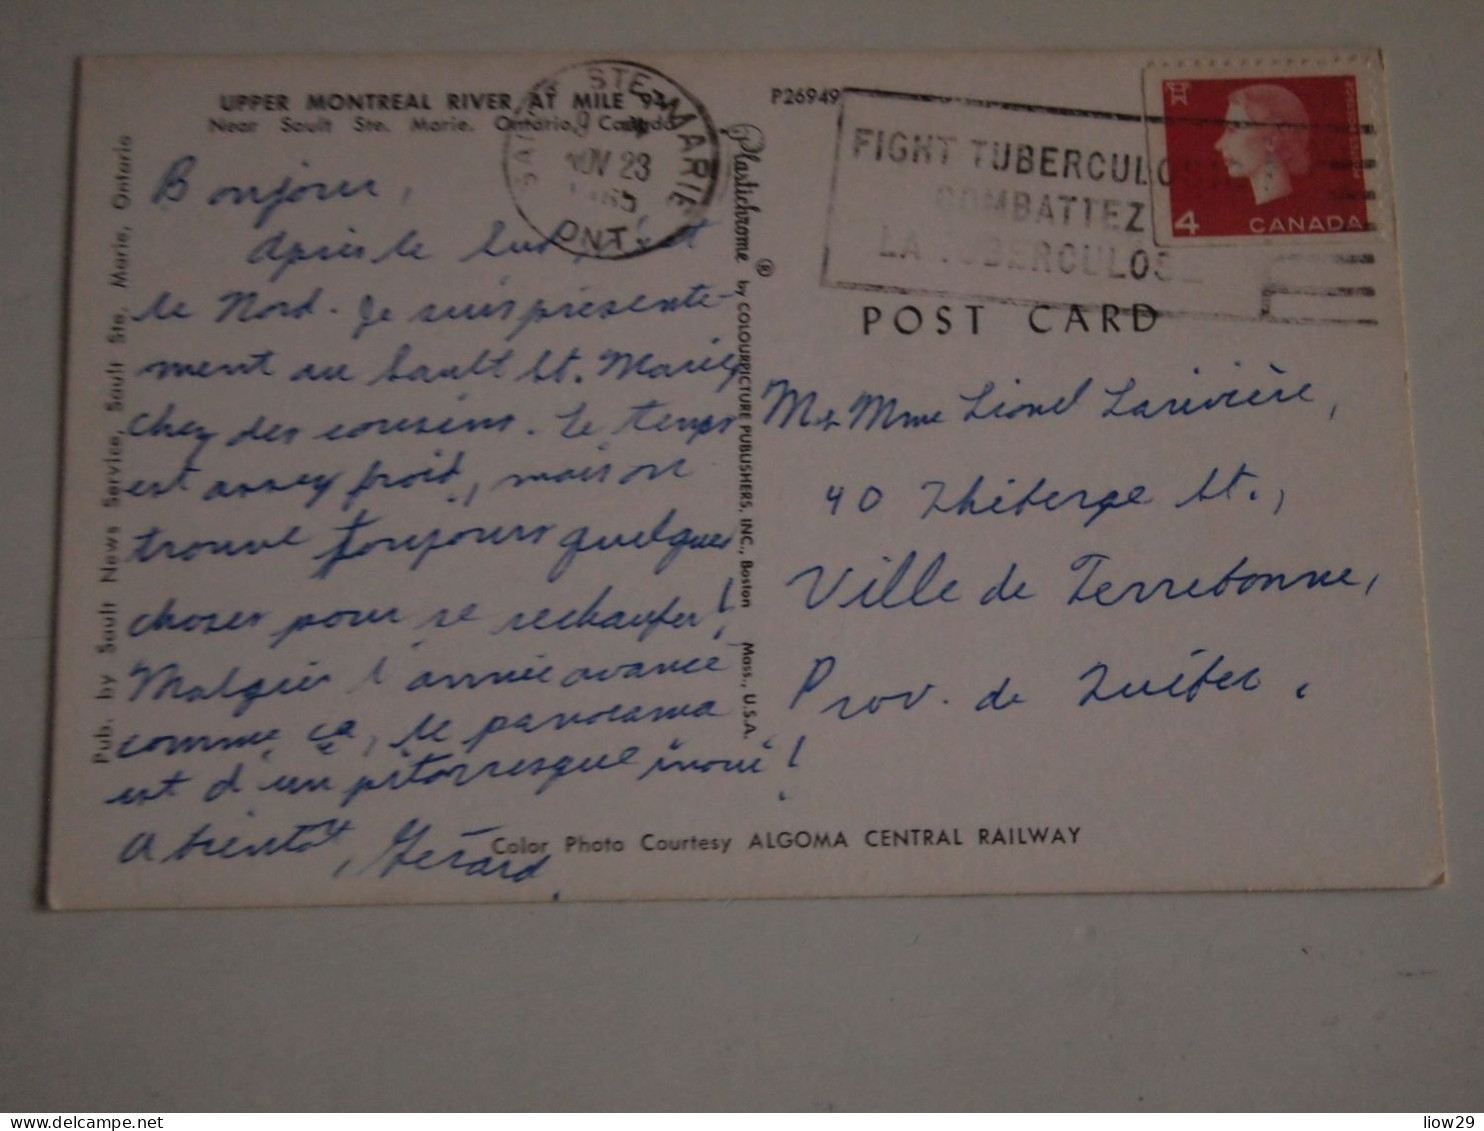 UPPER MONTREAL RIVER AT MILE 94
Near Sault Ste. Marie, Ontario, Canada
P26949
SAULT STE. MARIE
NOV 23
1965
ONT.
FIGHT TUBERCULOSIS
COMBATTEZ
LA TUBERCULOSE
4 CANADA
POSTES POSTAGE
Pub. by Sault News Service, Sault Ste. Marie, Ontario
Plastichrome ® by COLOURPICTURE PUBLISHERS, INC., Boston Mass., U.S.A.
POST CARD
Bonjour,
Après le Sud, c'est
le Nord. Je suis présente-
ment au Sault St. Marie,
chez des cousins. Le temps
est assez froid, mais on
trouve toujours quelques
choses pour se rechaufer!
Malgrés l'année avancé
comme ça, le panorama
est d'un pitorresque inoui!
A bientôt, Gérard.
M. & Mme Lionel Larivière,
40 Théberge St.,
Ville de Terrebonne,
Prov. de Québec.
Color Photo Courtesy ALGOMA CENTRAL RAILWAY
liow29